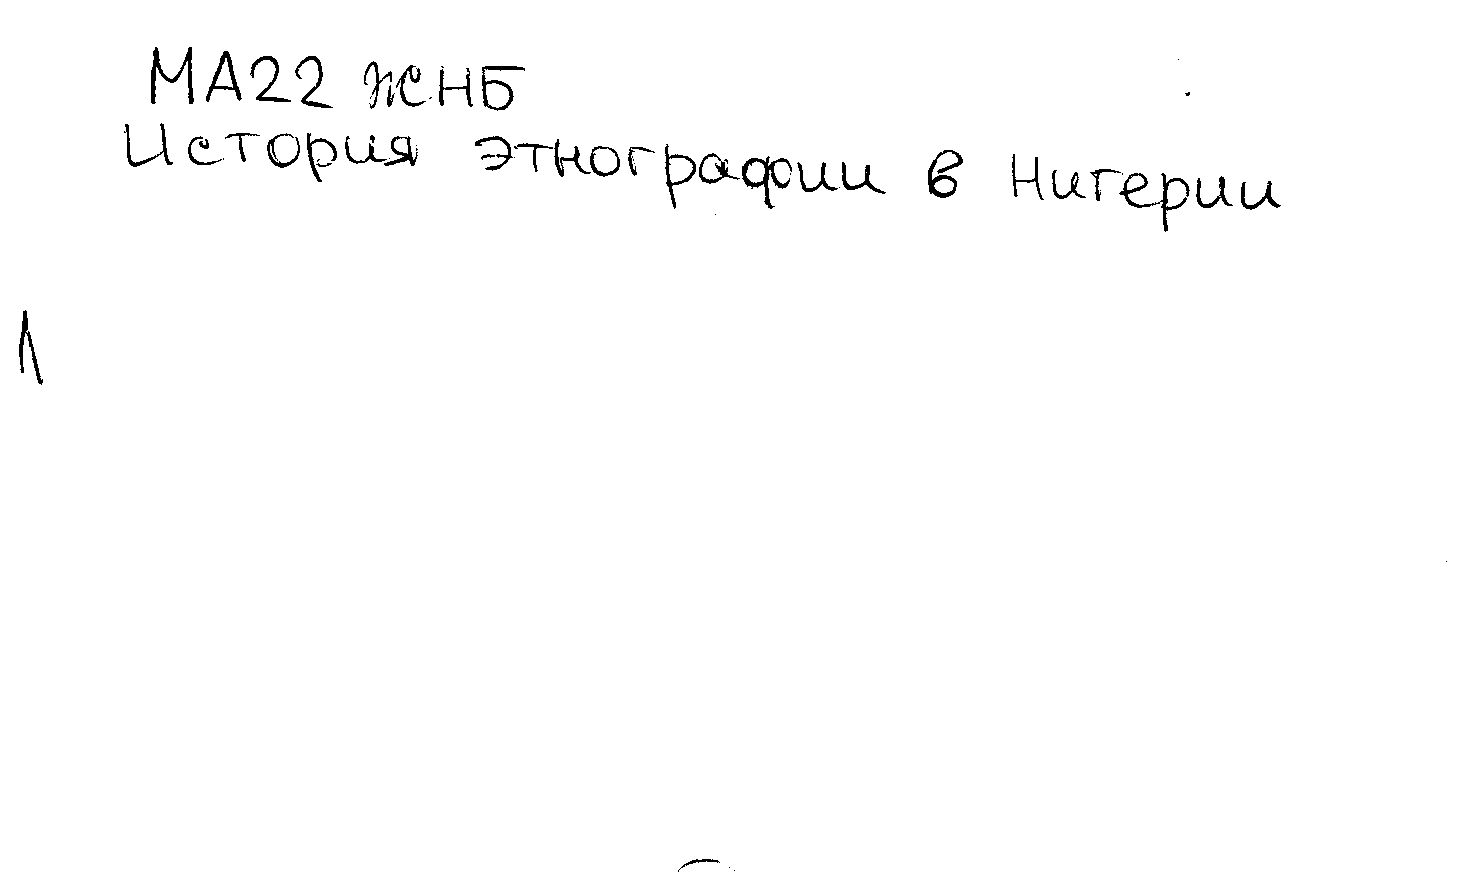 МА22 ЖНБ
История этнографии в Нигерии